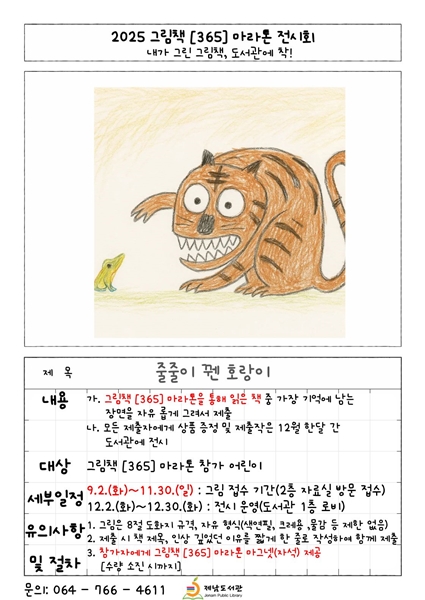 2025 그림책 [365] 마라톤 전시회
내가 그린 그림책, 도서관에 착!
제 목 줄줄이 꿴 호랑이
내용 가. 그림책 [365] 마라톤을 통해 읽은 책 중 가장 기억에 남는
장면을 자유 롭게 그려서 제출
나. 모든 제출자에게 상품 증정 및 제출작은 12월 한달 간
도서관에 전시
대상 그림책 [365] 마라톤 참가 어린이
세부일정 9.2.(화)~11.30.(일) : 그림 접수 기간(2층 자료실 방문 접수)
12.2.(화)~12.30.(화) : 전시 운영(도서관 1층 로비)
유의사항 1. 그림은 8절 도화지 규격, 자유 형식(색연필, 크레용, 물감 등 제한 없음)
2. 제출 시 책 제목, 인상 깊었던 이유를 짧게 한 줄로 작성하여 함께 제출
및 절차 3. 참가자에게 그림책 [365] 마라톤 마그넷(자석) 제공
[수량 소진 시까지]
문의: 064 - 766 - 4611 제남도서관
Jenam Public Library